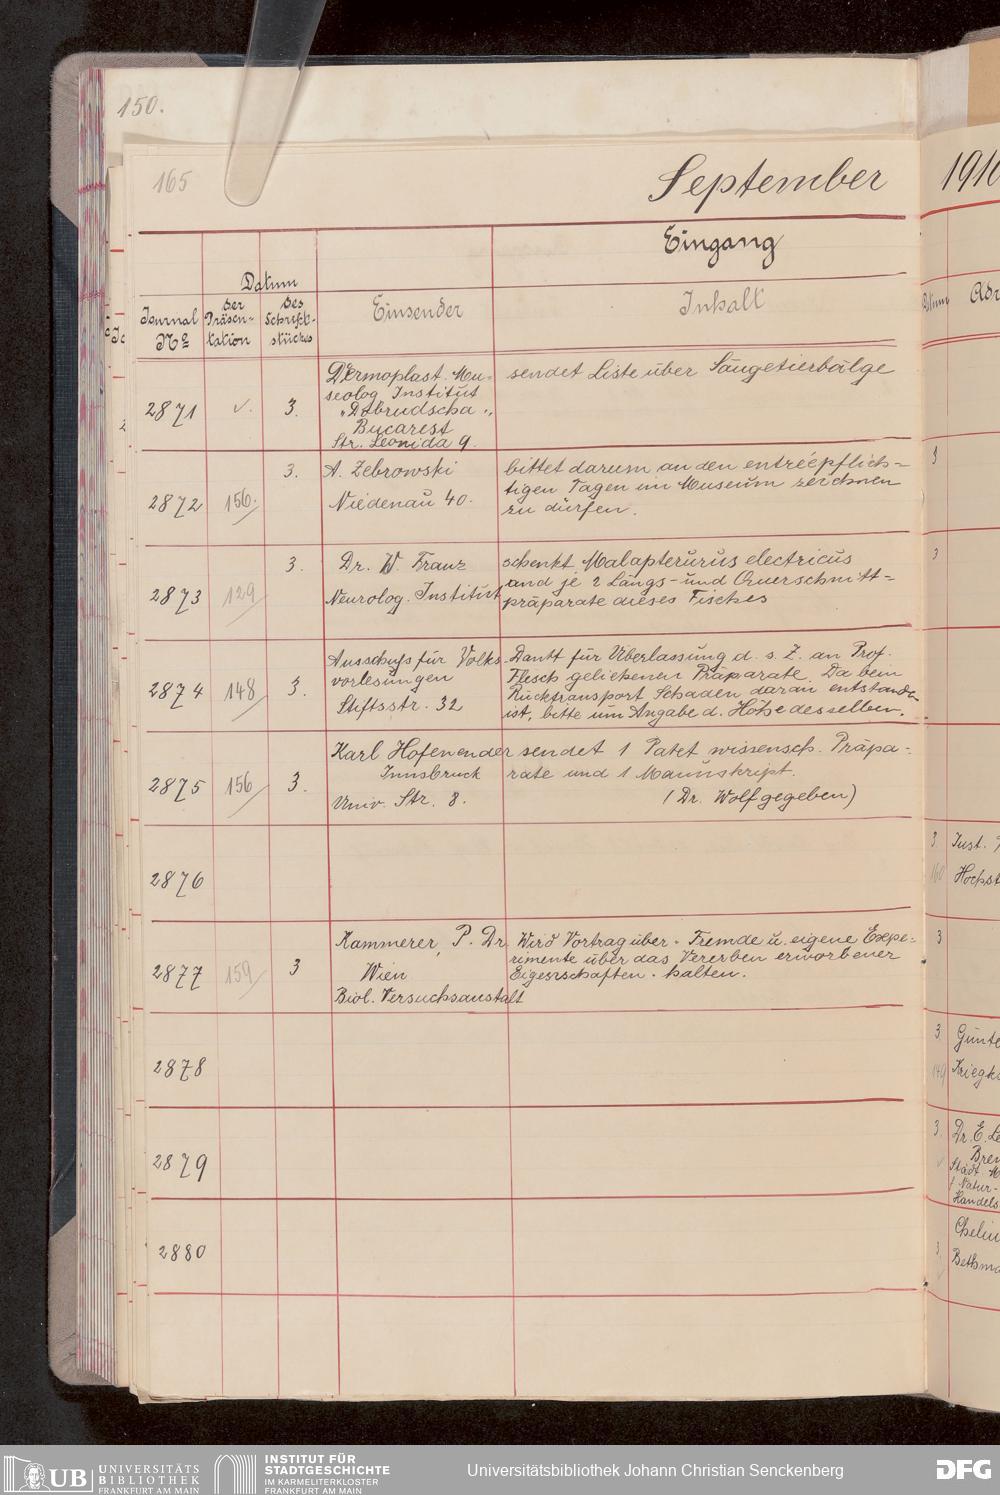 150.
165
September
1910
Eingang
Datum
Journal
Nº
der
Präsen-
tation
des
Schrift-
stückes
Einsender
Inhalt
Datum
Adr
2871
✓.
3.
Dermoplast. Mu-
seolog. Institut
"Dobrudscha"
Bucarest
Str. Leonida 9.
sendet Liste über Säugetierbälge
2872
156.
3.
A. Zebrowski
Niedenau 40.
bittet darum an den entréepflich-
tigen Tagen im Museum zeichnen
zu dürfen.
2873
129
3.
Dr. W. Franz
Neurolog. Institut
schenkt Malapterurus electricus
und je 2 Längs- und Querschnitt-
präparate dieses Fisches
2874
148
3.
Ausschuss für Volks-
vorlesungen
Stiftsstr. 32
Dankt für Überlassung d. s. Z. an Prof.
Flesch geliehenen Präparate. Da beim
Rücktransport Schaden daran entstanden
ist, bitte um Angabe d. Höhe desselben.
2875
156
3.
Karl Hofenender
Innsbruck
Univ. Str. 8.
sendet 1 Paket wissensch. Präpa-
rate und 1 Manuskript.
(Dr. Wolf gegeben)
2876
2877
159
3
Kammerer, P. Dr.
Wien
Biol. Versuchsanstalt
Wird Vortrag über "Fremde u. eigene Expe-
rimente über das Vererben erworbener
Eigenschaften" halten.
2878
2879
2880
3
3
3
160
Inst.
Hochst
3
3.
149
Günte
Kriegk
3.
✓
Dr. E. Le
Brem
Städt. M
f. Natur-
Handels
3
Bethma
UB
UNIVERSITÄTS
BIBLIOTHEK
FRANKFURT AM MAIN
INSTITUT FÜR
STADTGESCHICHTE
IM KARMELITERKLOSTER
FRANKFURT AM MAIN
Universitätsbibliothek Johann Christian Senckenberg
DFG